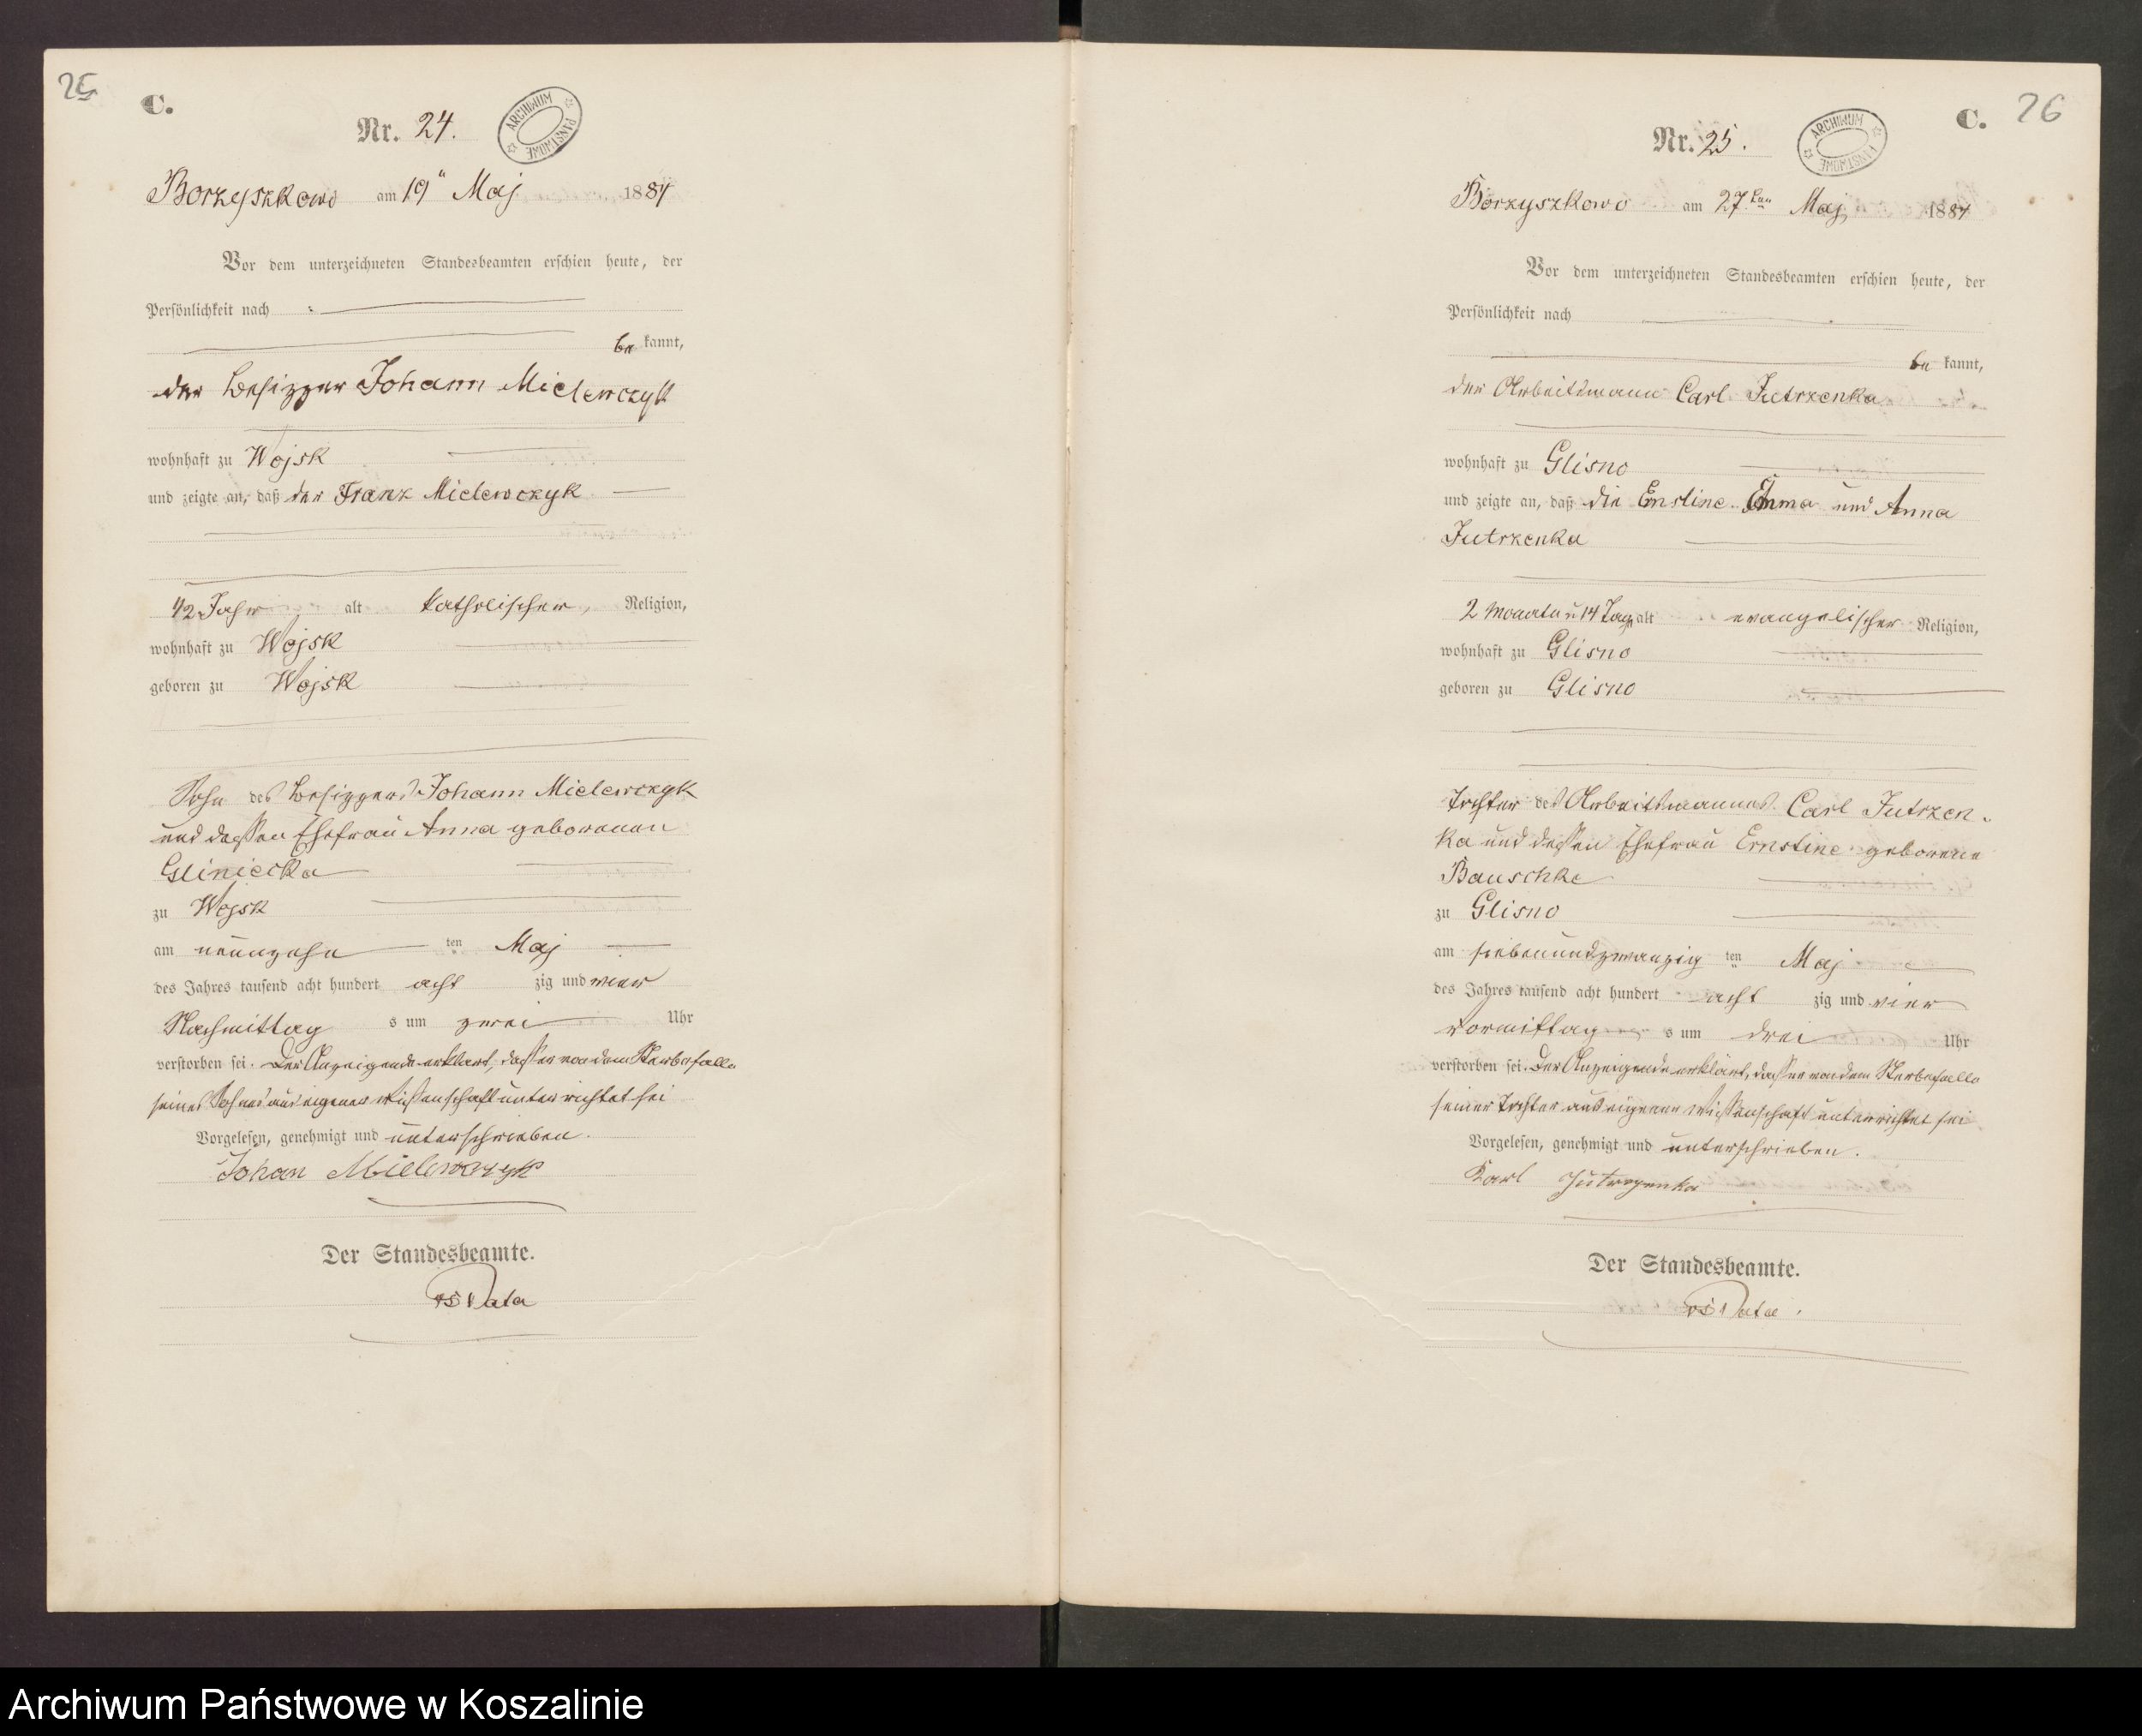 25
C.
Nr. 24.
ARCHIWUM PAŃSTWOWE
Borzyszkowo am 19" Maj 1884
Vor dem unterzeichneten Standesbeamten erschien heute, der
Persönlichkeit nach
be kannt,
der Besitzer Johann Mielewczyk
wohnhaft zu Wojsk
und zeigte an, daß der Franz Mielewczyk
1/2 Jahr alt katholischer, Religion,
wohnhaft zu Wojsk
geboren zu Wojsk
Sohn des Besitzers Johann Mielewczyk
und dessen Ehefrau Anna geborenen
Gliniecka
zu Wojsk
am neunzehn ten Maj
des Jahres tausend acht hundert acht zig und vier
Nachmittag s um zwei Uhr
verstorben sei. Der Anzeigende erklärt, dass er von dem Sterbefalle
seines Sohnes aus eigener Wissenschaft unterrichtet sei
Vorgelesen, genehmigt und unterschrieben.
Johan Mielewczyk
Der Standesbeamte.
C. 26
Nr. 25.
ARCHIWUM PAŃSTWOWE
Borzyszkowo am 27ten Maj 1884
Vor dem unterzeichneten Standesbeamten erschien heute, der
Persönlichkeit nach
be kannt,
der Arbeitsmann Carl Jutrzenka
wohnhaft zu Glisno
und zeigte an, daß die Ernstine Emma und Anna
Jutrzenka
2 Monate u 14 Tage alt evangelischer Religion,
wohnhaft zu Glisno
geboren zu Glisno
Tochter des Arbeitsmannes Carl Jutrzen-
ka und dessen Ehefrau Ernstine geborene
Bauschke
zu Glisno
am siebenundzwanzig ten Maj
des Jahres tausend acht hundert acht zig und vier
Vormittag s um drei Uhr
verstorben sei. Der Anzeigende erklärt, dass er von dem Sterbefalle
seiner Tochter aus eigener Wissenschaft unterrichtet sei
Vorgelesen, genehmigt und unterschrieben.
Karl Jutrzenka
Der Standesbeamte.
Archiwum Państwowe w Koszalinie